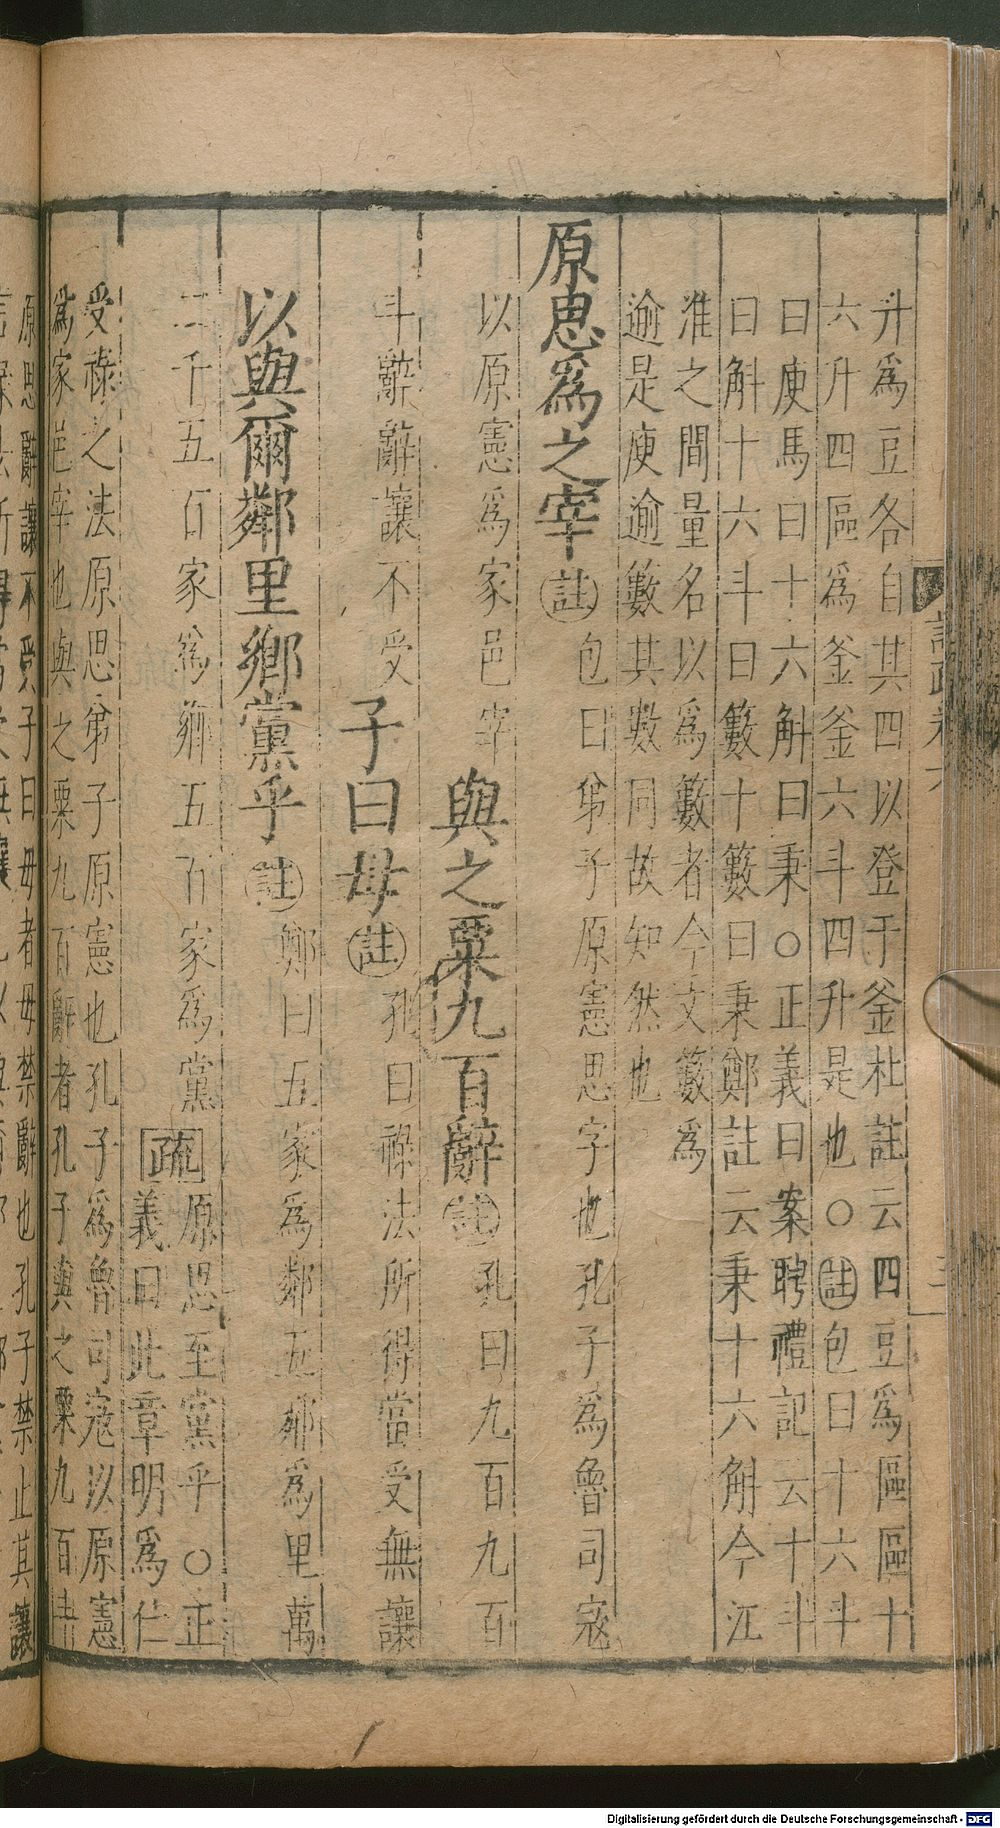 升爲豆各自其四以登于釜杜註云四豆爲區區十
六升四區爲釜釜六斗四升是也○註包曰十六斗
曰庾馬曰十六斛曰秉○正義曰案聘禮記云十斗
曰斛十六斗曰籔十籔曰秉鄭註云秉十六斛今江
淮之間量名以爲籔者今文籔爲
逾是庾逾籔其數同故知然也
原思爲之宰註包曰弟子原憲思字也孔子爲魯司寇
以原憲爲家邑宰 與之粟九百辭註孔曰九百九百
斗辭辭讓不受 子曰毋註孔曰祿法所得當受無讓
以與爾鄰里鄉黨乎註鄭曰五家爲鄰五鄰爲里萬
二千五百家爲鄉五百家爲黨 疏 原思至黨乎○正
義曰此章明爲仁
受祿之法原思弟子原憲也孔子爲魯司寇以原憲
爲家邑宰也與之粟九百辭者孔子與之粟九百
原思辭讓不受子曰毋者毋禁辭也孔子禁止其讓
註疏卷六
Digitalisierung gefördert durch die Deutsche Forschungsgemeinschaft - DFG